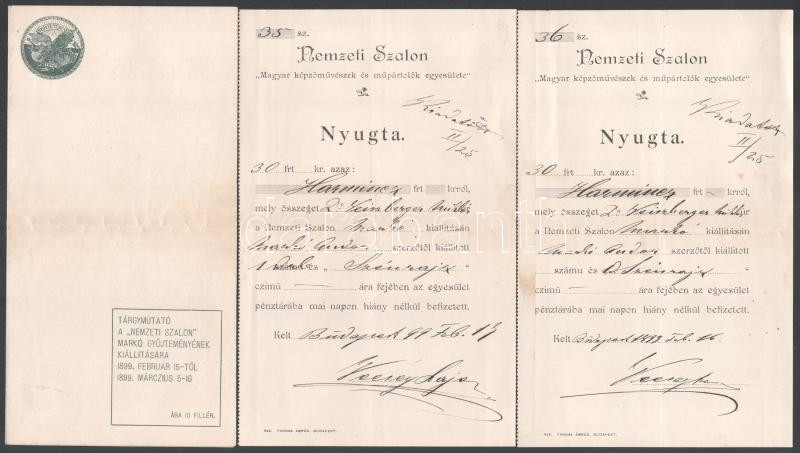 TÁRGYMUTATÓ
A „NEMZETI SZALON"
MARKÓ GYŰJTEMÉNYÉNEK
KIÁLLITÁSÁRA
1899. FEBRUAR 15-TŐL
1899. MÁRCZIUS 5-IG
ÁRA 10 FILLÉR.
35 sz.
Nemzeti Szalon
„Magyar képzőművészek és műpártolók egyesülete"
Kiadatott
II/25
Nyugta.
30 frt kr. azaz:
Harmincz frt krról,
mely összeget Dr Weinberger
a Nemzeti Szalon Markó kiállitásán
Markó Andor szerzőtől kiállitott
1 számú és „Szénrajz"
czimű — ára fejében az egyesület
pénztárába mai napon hiány nélkül befizetett.
Kelt Budapest 99 Feb. 17
Vécsey Lajos
36 sz.
Nemzeti Szalon
„Magyar képzőművészek és műpártolók egyesülete"
Kiadatott
II/25
Nyugta.
30 frt kr. azaz:
Harmincz frt — krról,
mely összeget Dr Weinberger úr
a Nemzeti Szalon Markó kiállitásán
Markó Andor szerzőtől kiállitott
számu és Szénrajz "
czimű — ára fejében az egyesület
pénztárába mai napon hiány nélkül befizetett.
Kelt Budapest 1899. Feb. 16.